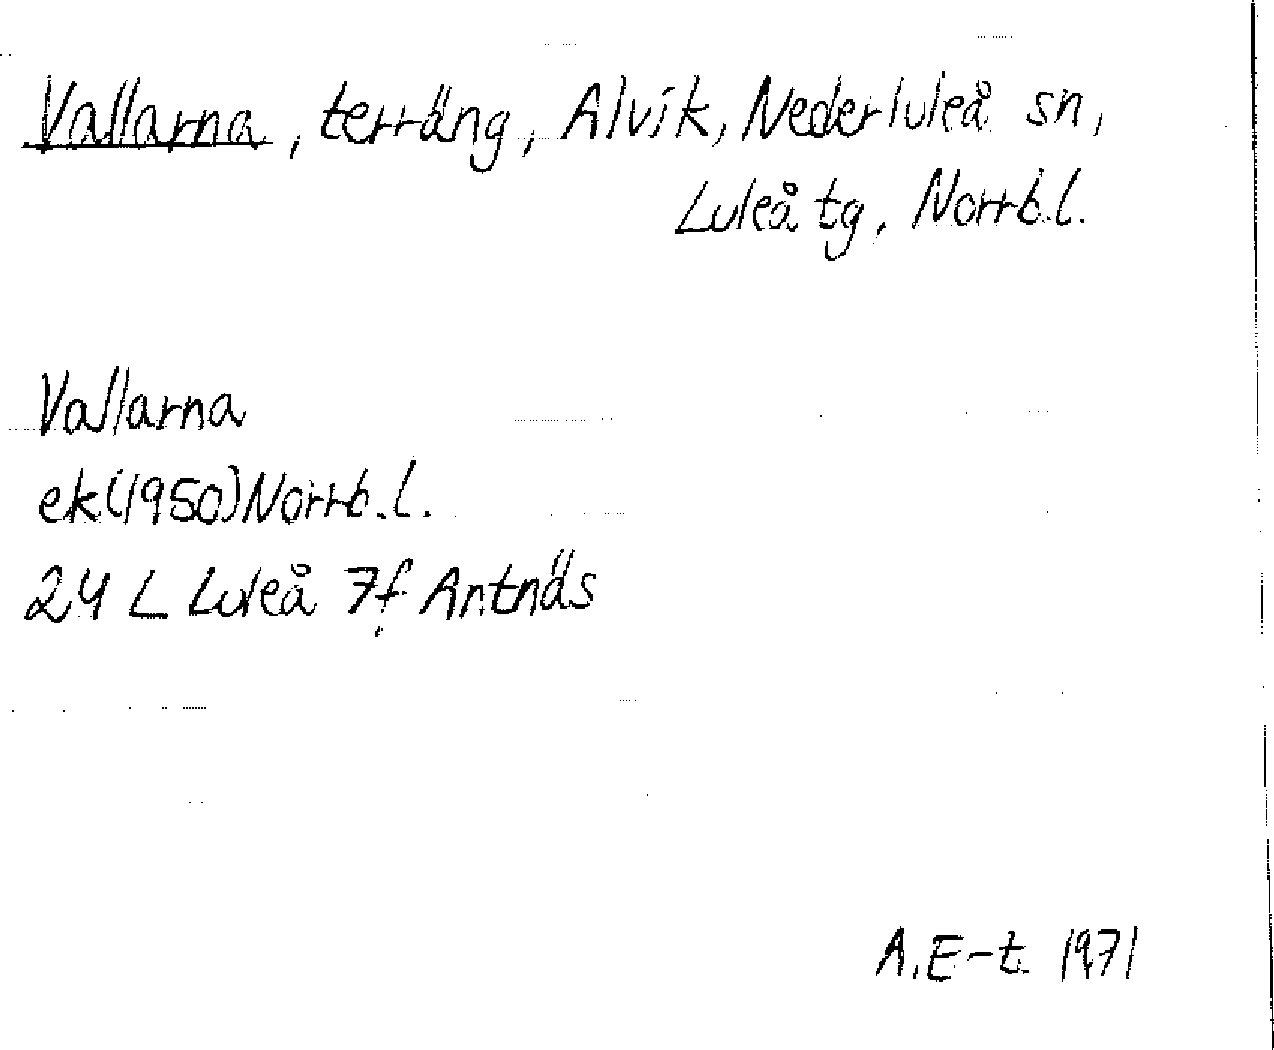 Vallarna, terräng, Alvik, Nederluleå sn,
Luleå tg, Norrb.l.
Vallarna
ek(1950)Norrb.l.
24 L Luleå 7f Antnäs
A.E-t. 1971